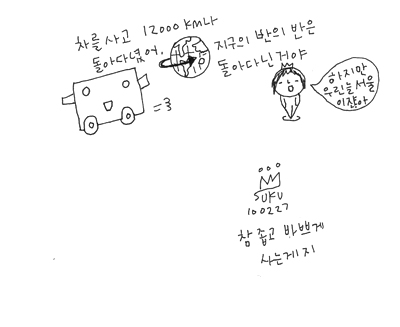 차를 사고 12000 km나
돌아다녔어,
지구의 반의 반은
돌아다닌거야
하지만
우린늘서울
이잖아
SUKU
100227
참 좁고 바쁘게
사는게지